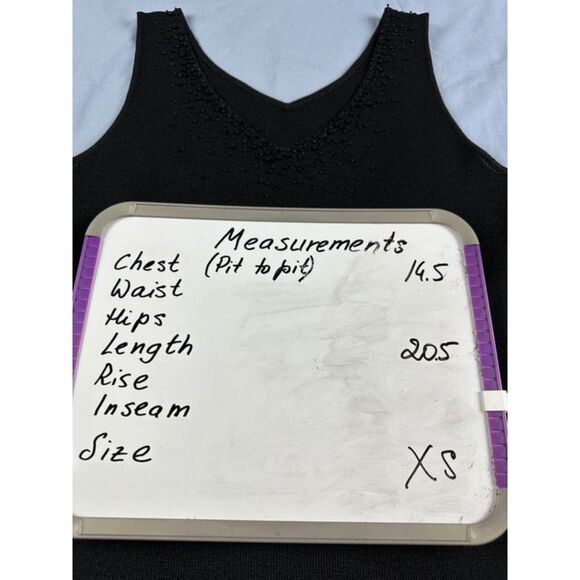 Measurements
Chest (Pit to pit) 14.5
Waist
Hips
Length 20.5
Rise
Inseam
Size XS